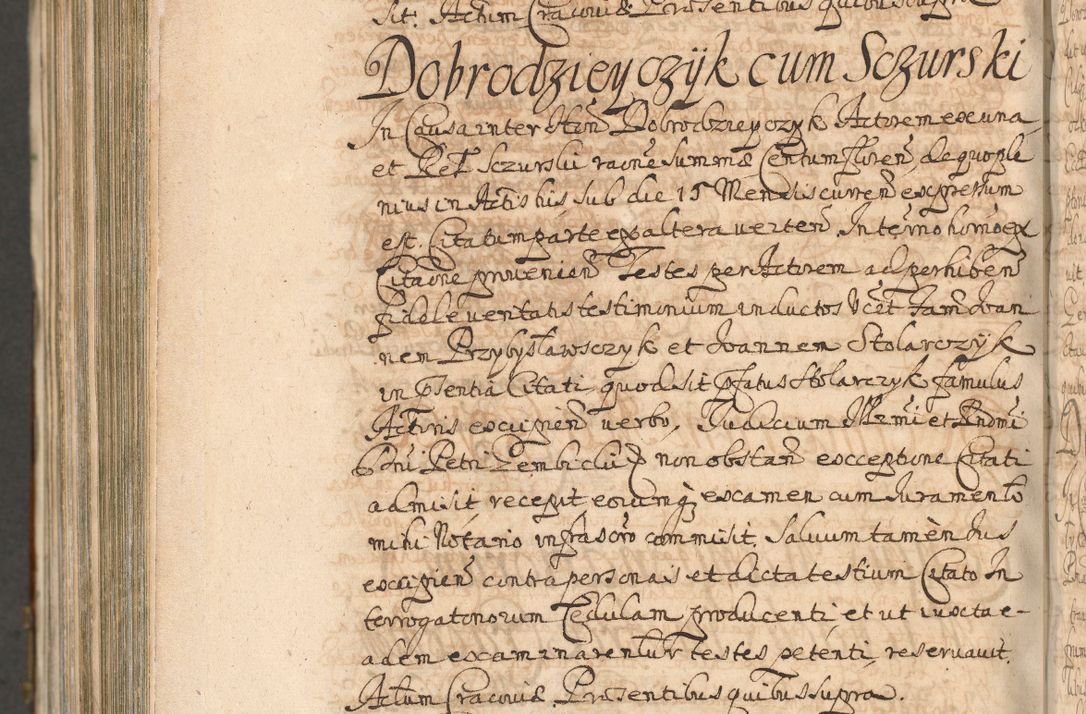 sit. Actum Cracoviæ Præsentibus quibus supra
Dobrodzieyczyk cum Sczurski
In Causa inter Hōn Dobrodzieyczyk Actorem ex una
et Petr Sczurski raōne summæ Centum floren̄ de quo ple
nius in Actis his sub die 15 Mensis curren̄ expressum
est. Citatum parte ex altera verten̄ In termo hornō ex
Citaōne provenien̄ Testes per Actorem ad perhiben̄
fidele veritatis testimonium inductos vćet Fam Joan
nem Przybysławsczyk et Joannem Stolarczyk
in Psentia Citati quod sit pfatus Stolarczyk famulus
Actoris excipien̄ verbo. Iudicium Illrmi et Rndmi
Dni Petri Gembicki non obstan̄ exceptione Citati
admisit recepit eorumq; examen cum Iuramento
mihi Notario infrascro commisit, Salvum tamèn Jus
excipien̄ contra personas et dicta testium Citato In
terrogatoriorum Cedulam producenti et ut iuxta e-
adem examinarentur testes petenti reservavit.
Actum Cracoviæ Præsentibus quibus supra.